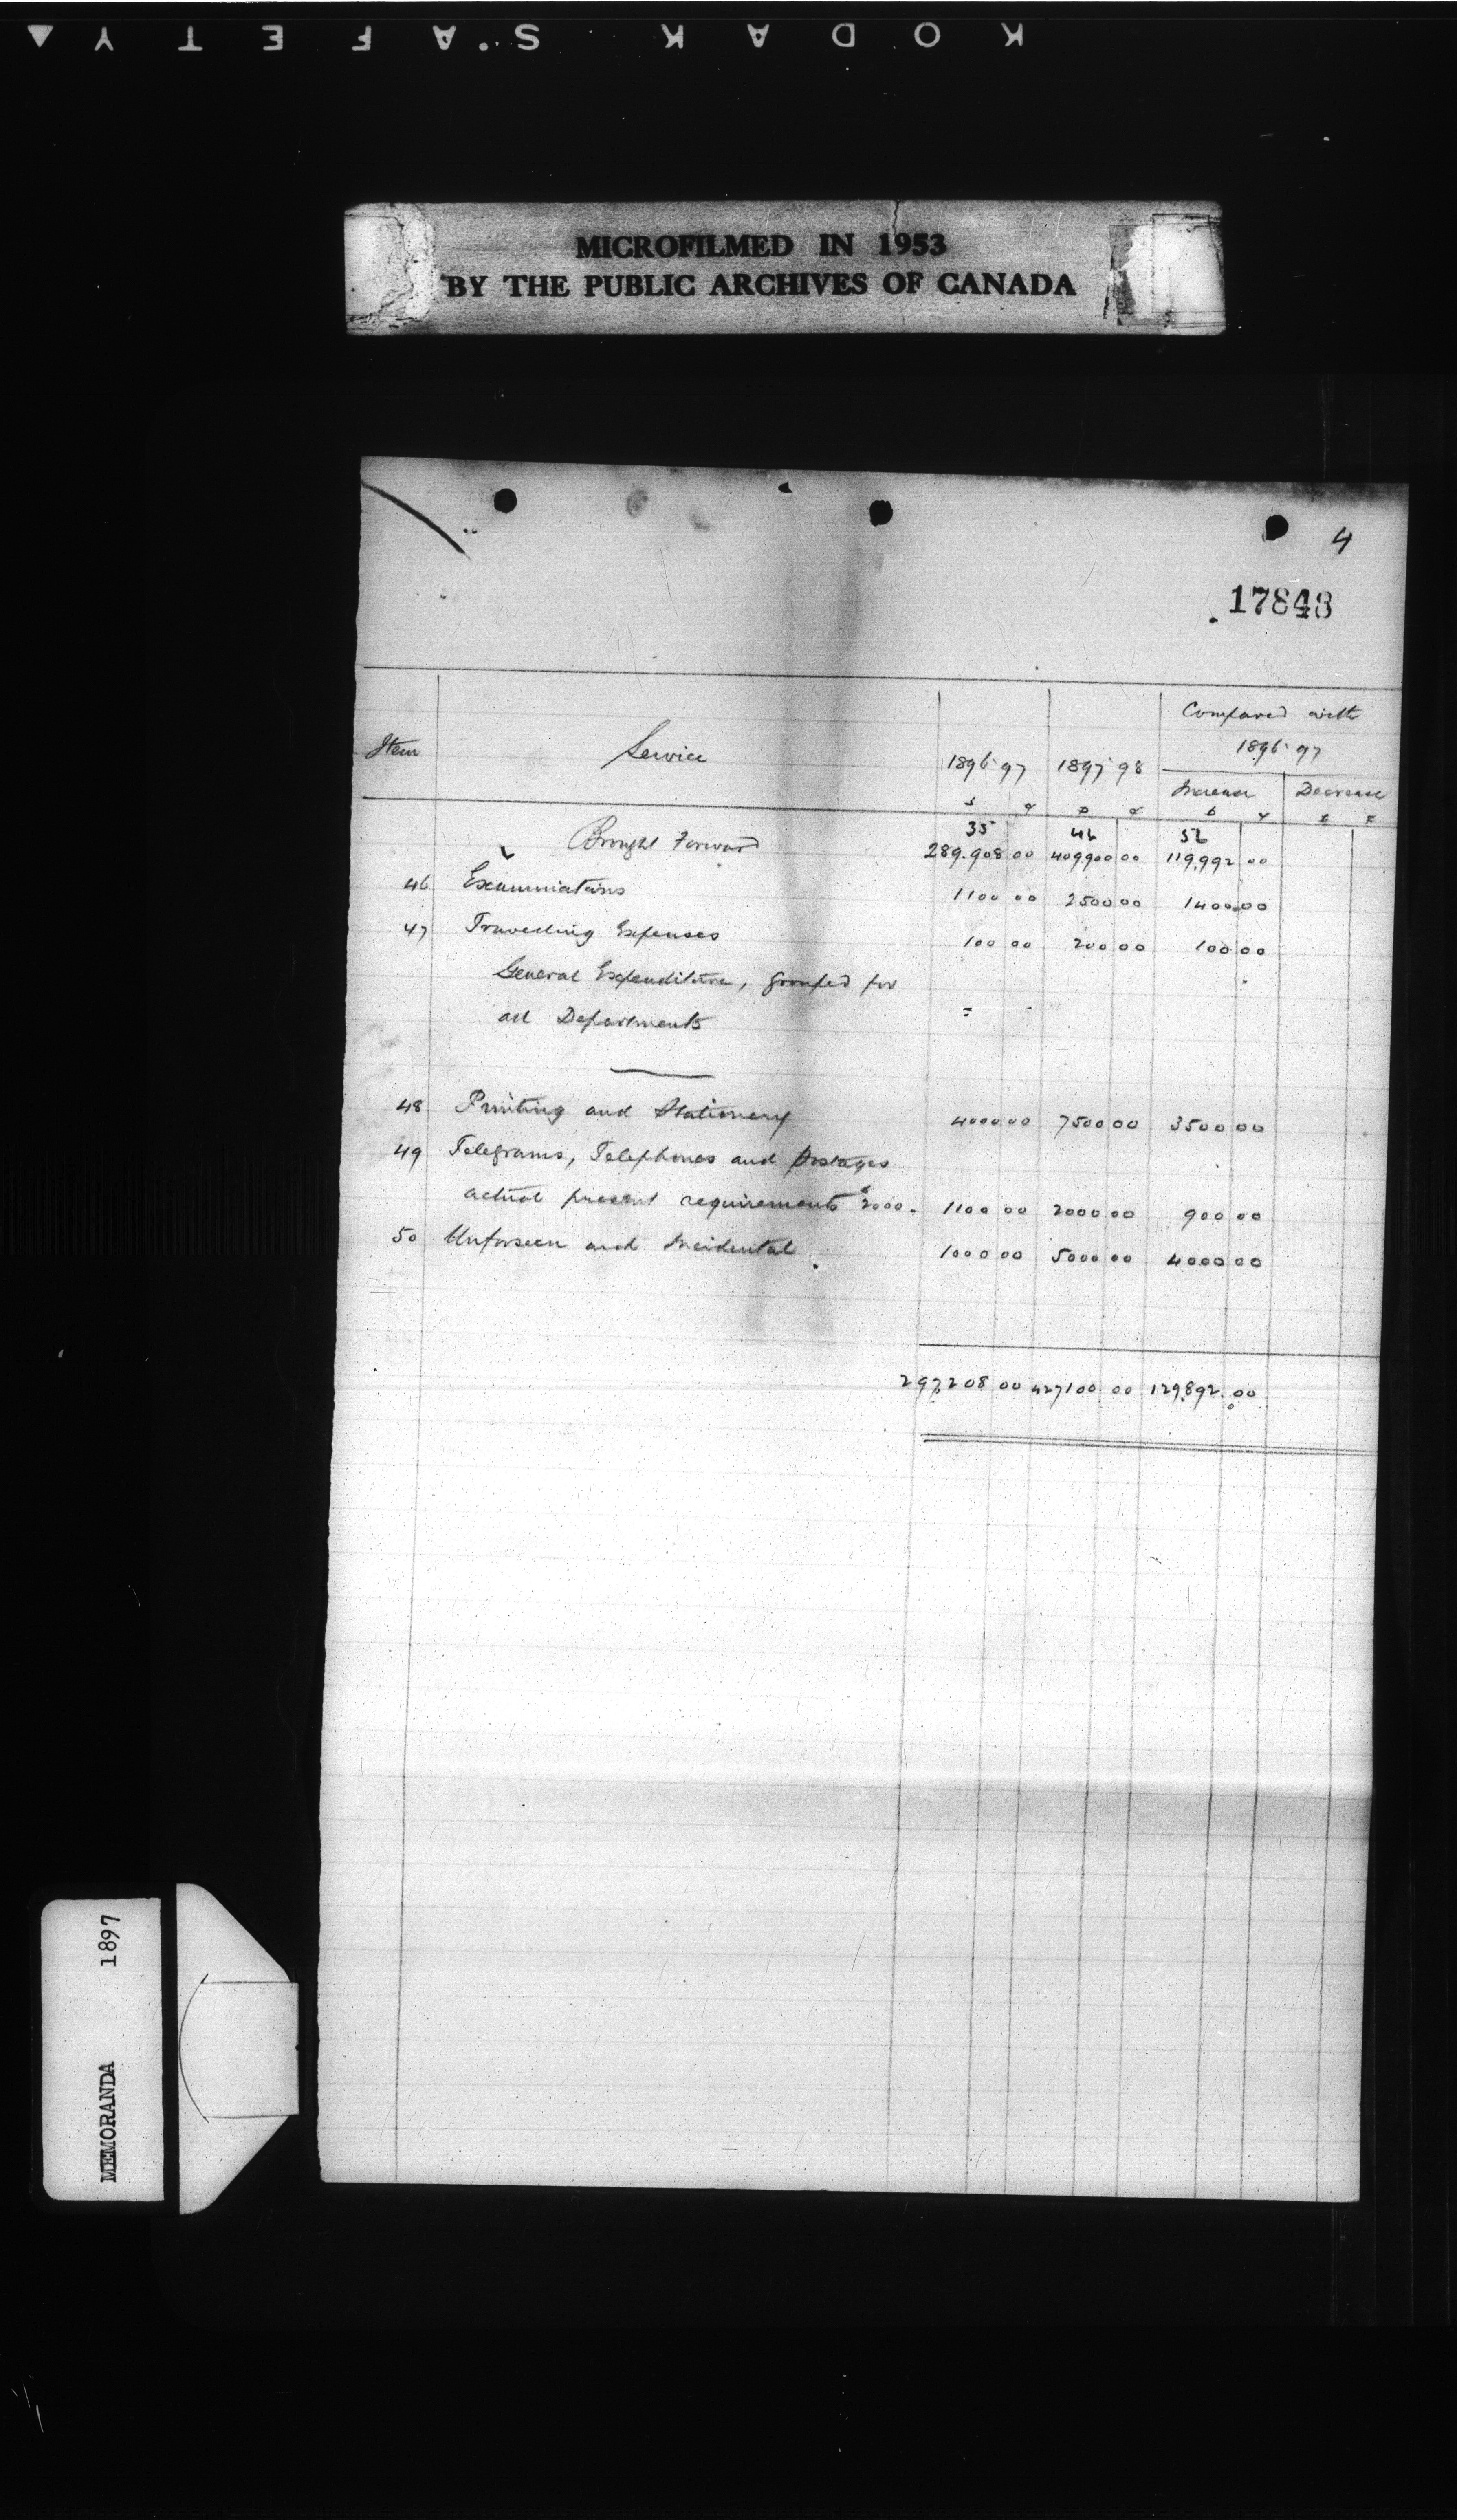 KODAK SAFETY
MICROFILMED IN 1953
BY THE PUBLIC ARCHIVES OF CANADA
4
17843
Item Service 1896-97 1897-98 Compared with
1896-97
Increase Decrease
$ c $ c $ c $ c
35 46 52
Brought Forward 289.908 00 409900 00 119,992 00
46 Examinations 1100 00 2500 00 1400 00
47 Travelling Expenses 100 00 200 00 100 00
General Expenditure, grouped for
all Departments
48 Printing and Stationery 4000 00 7500 00 3500 00
49 Telegrams, Telephones and Postages
actual present requirements $2000. 1100 00 2000 00 900 00
50 Unforseen and Incidental 1000 00 5000 00 4000 00
297,208 00 427100 00 129,892.00
MEMORANDA 1897